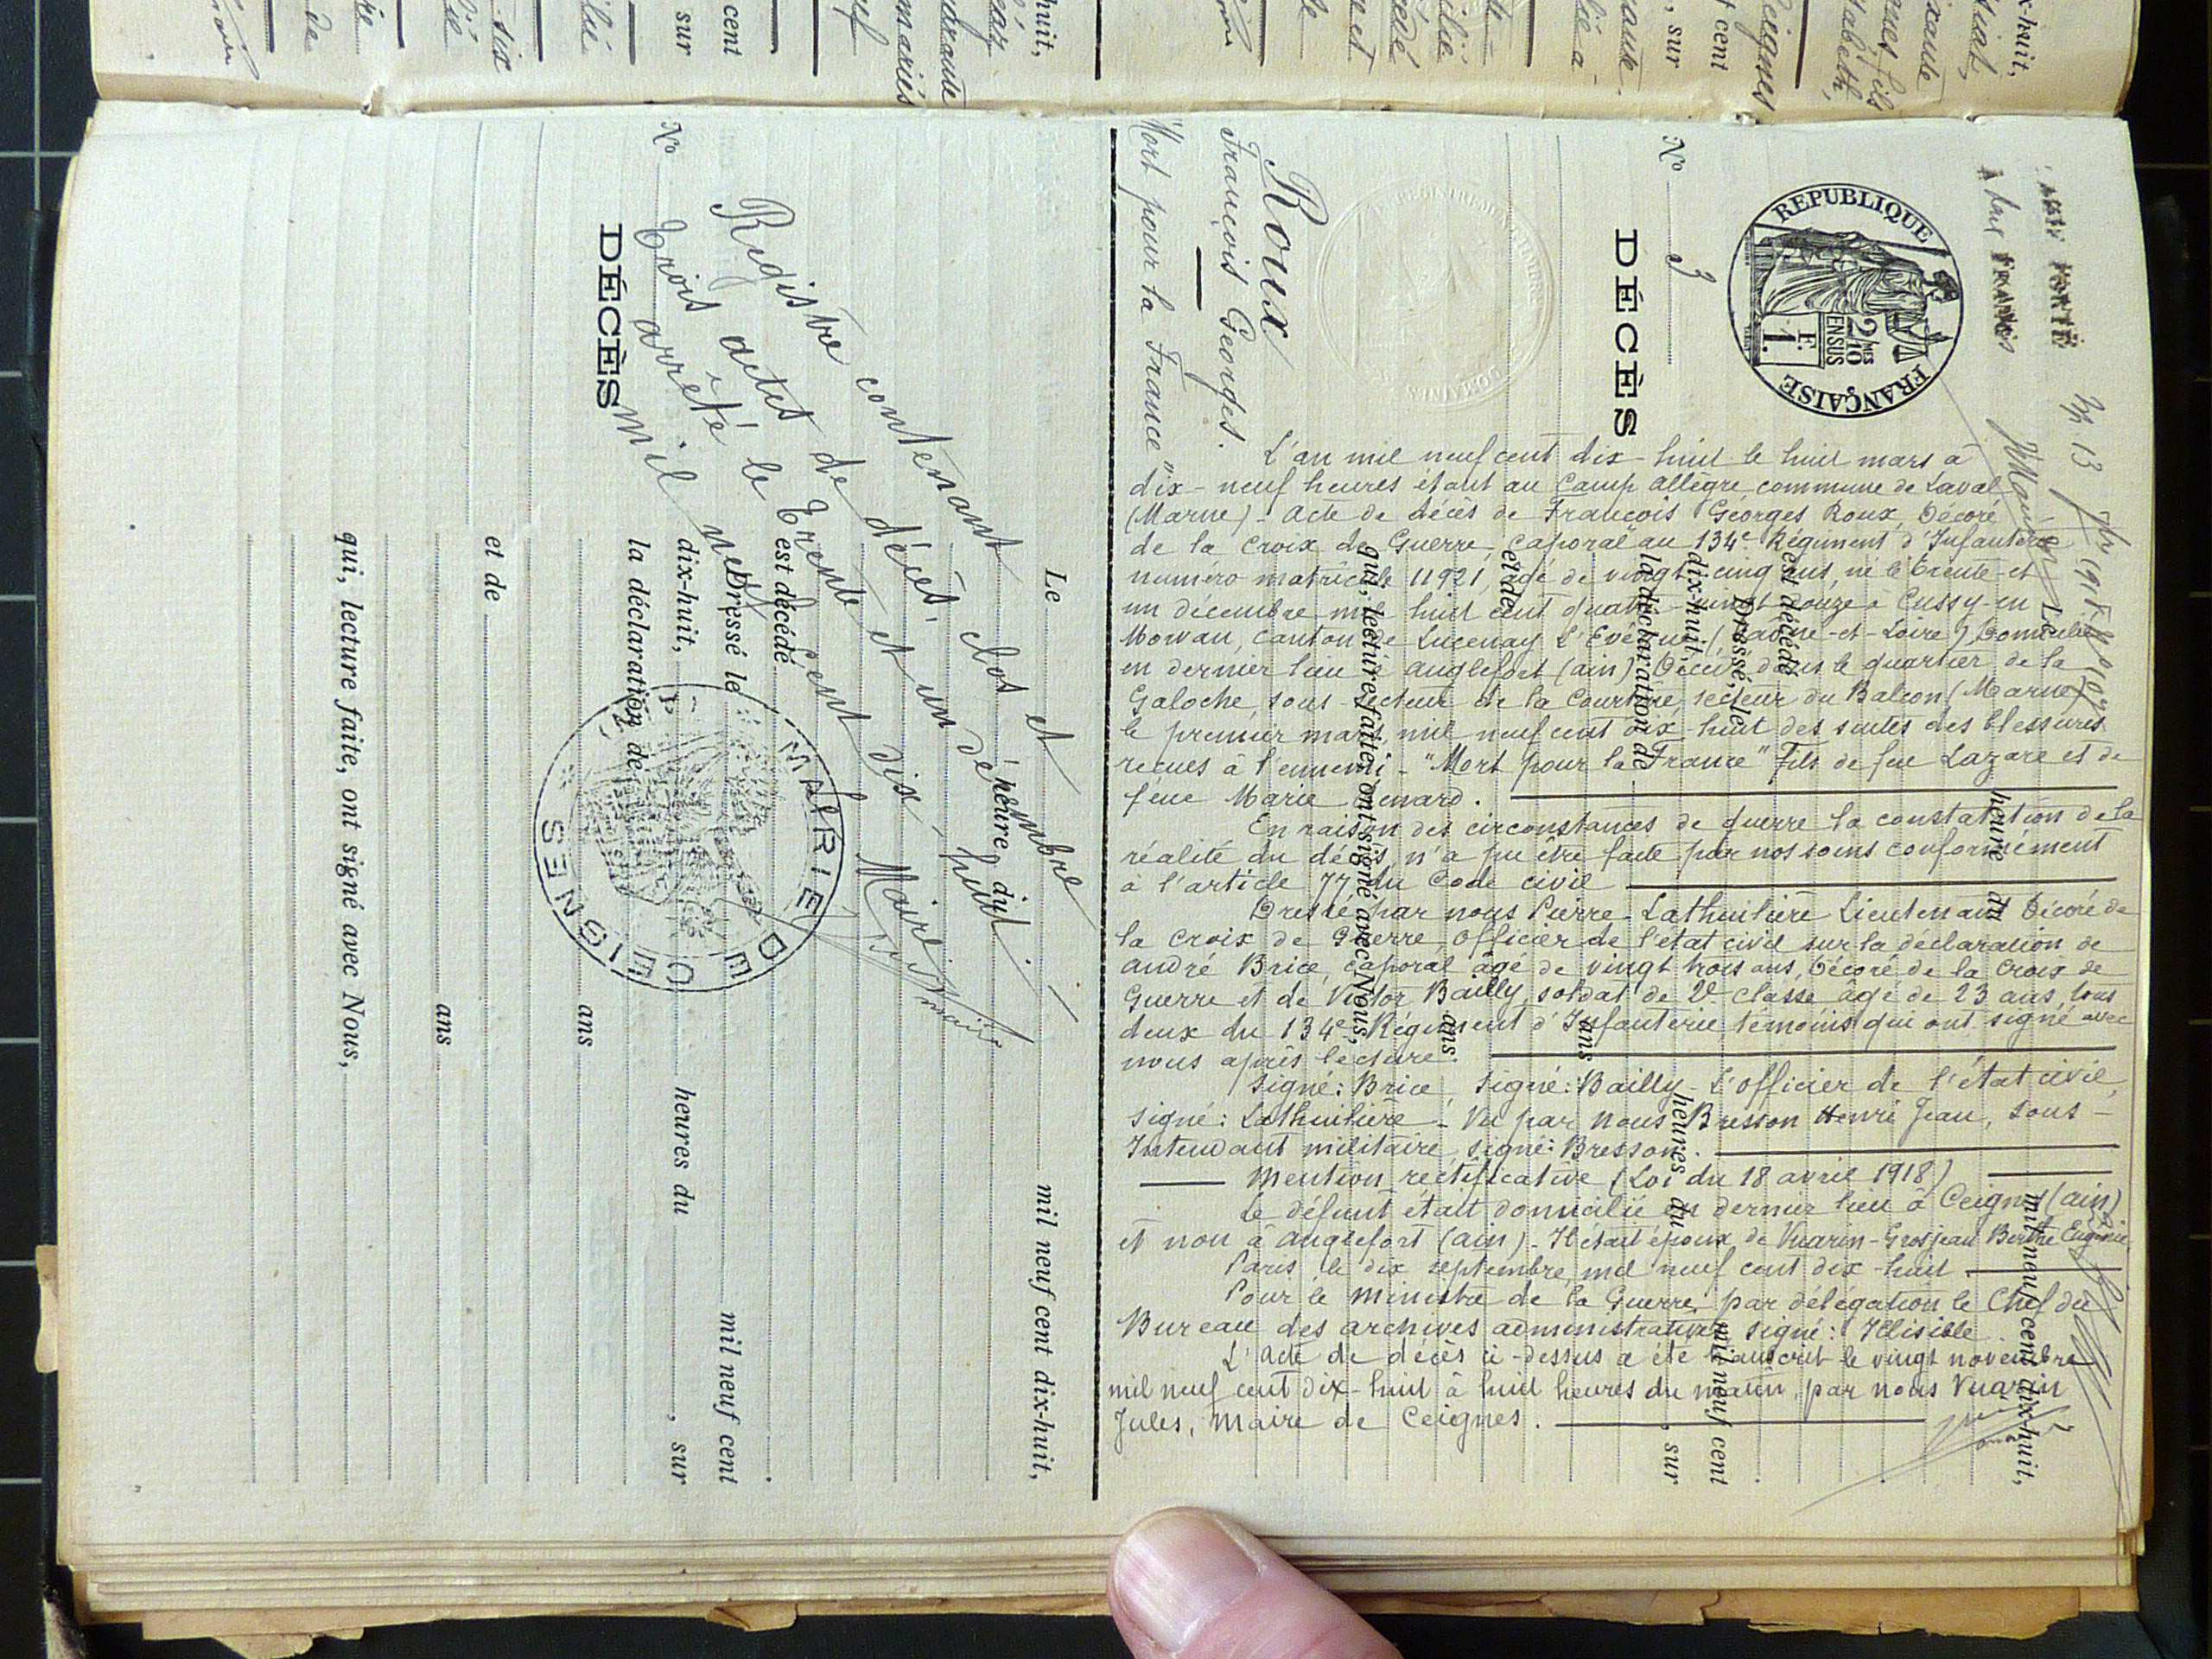 N° 3
DÉCÈS
Roux
François Georges.
"Mort pour la France"
RÉPUBLIQUE FRANÇAISE
2/10 MES
EN SUS
1 F.
L'an mil neuf cent dix-huit le huit mars à
dix-neuf heures étant au Camp Allègre, commune de Laval
(Marne) - Acte de décès de François Georges Roux, Décoré
de la Croix de Guerre, Caporal au 134e Régiment d'Infanterie
numéro matricule 11921, âgé de vingt cinq ans, né le trente et
un décembre mil huit cent quatre-vingt douze à Cussy-en
Morvan, canton de Lucenay L'Evêque (Saône-et-Loire) Domicilié
en dernier lieu à Anglefort (Ain) Décédé dans le quartier de la
Galoche, sous-secteur de la Courtine, secteur du Balcon (Marne)
le premier mars mil neuf cent dix-huit des suites des blessures
reçues à l'ennemi - "Mort pour la France" Fils de feu Lazare et de
feue Marie
En raison des circonstances de guerre la constatation de la
réalité du décès n'a pu être faite par nos soins conformément
à l'article 77 du Code civil
Dressé par nous Pierre Lathuilière Lieutenant Décoré de
la Croix de Guerre, Officier de l'état civil sur la déclaration de
André Brice, Caporal âgé de vingt trois ans, Décoré de la Croix de
Guerre et de Victor Bailly, soldat de 2e classe âgé de 23 ans, tous
deux du 134e Régiment d'Infanterie, témoins qui ont signé avec
nous après lecture.
Signé: Brice, Signé: Bailly - L'officier de l'état civil,
signé: Lathuilière - Vu par Nous Bresson Henri Jean, Sous-
Intendant militaire, signé: Bresson.
Mention rectificative (Loi du 18 avril 1918)
Le défunt était domicilié en dernier lieu à Ceignes (Ain)
et non à Anglefort (Ain) - Il était époux de Vuarin-Grosjean Berthe Eugénie
Paris le dix septembre mil neuf cent dix-huit
Pour le Ministre de la Guerre, par délégation le Chef du
Bureau des archives administratives signé: Illisible
L'acte de décès ci-dessus a été transcrit le vingt novembre
mil neuf cent dix-huit à huit heures du matin, par nous Vuarin
Jules, Maire de Ceignes.
Le
mil neuf cent dix-huit,
heure du
est décédé
Dressé le
mil neuf cent
dix-huit,
heures du
, sur
la déclaration de
ans
et de
ans
qui, lecture faite, ont signé avec Nous,
N°
DÉCÈS
Le
mil neuf cent dix-huit,
heure du
est décédé
Dressé le
mil neuf cent
dix-huit,
heures du
, sur
la déclaration de
ans
et de
ans
qui, lecture faite, ont signé avec Nous,
Registre contenant clos et
trois actes de décès
arrêté le trente et un décembre
mil neuf cent dix-huit.
Maire
MAIRIE DE CEIGNES